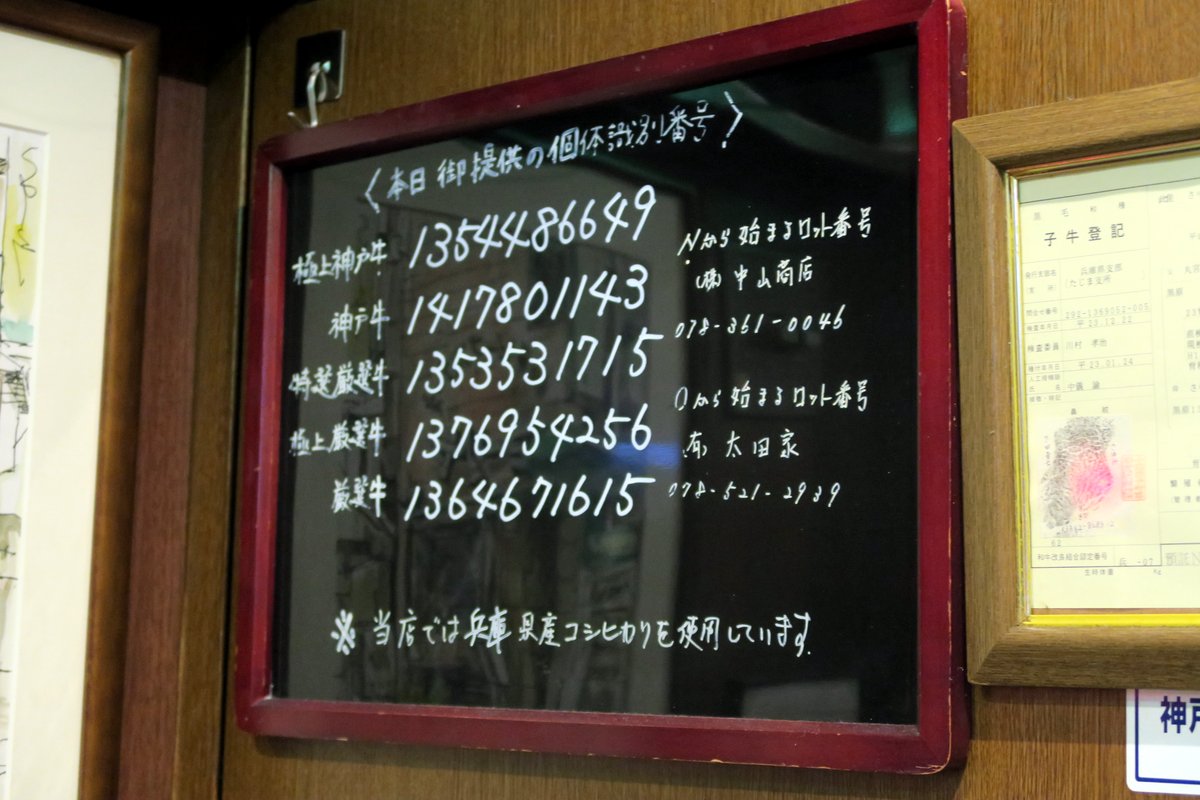 〈本日御提供の個体識別番号〉
極上神戸牛 1354486649
神戸牛 1417801143
特選厳選牛 1353531715
極上厳選牛 1376954256
厳選牛 1364671615
Nから始まるロット番号
(株)中山商店
078-361-0046
Oから始まるロット番号
(有)太田家
078-521-2939
※当店では兵庫県産コシヒカリを使用しています
黒毛和種
子牛登記
発行支部名
兵庫県支部
たじま支所
問合せ番号 292-1369052-005
検査年月日 平 23.12.22
検査委員 川村 孝也
種付年月日 平 23.01.24
人工授精師
氏名 中儀 諭
鼻紋
62
和牛改良組合認定番号 兵 -07
生時体重 Kg
神戸